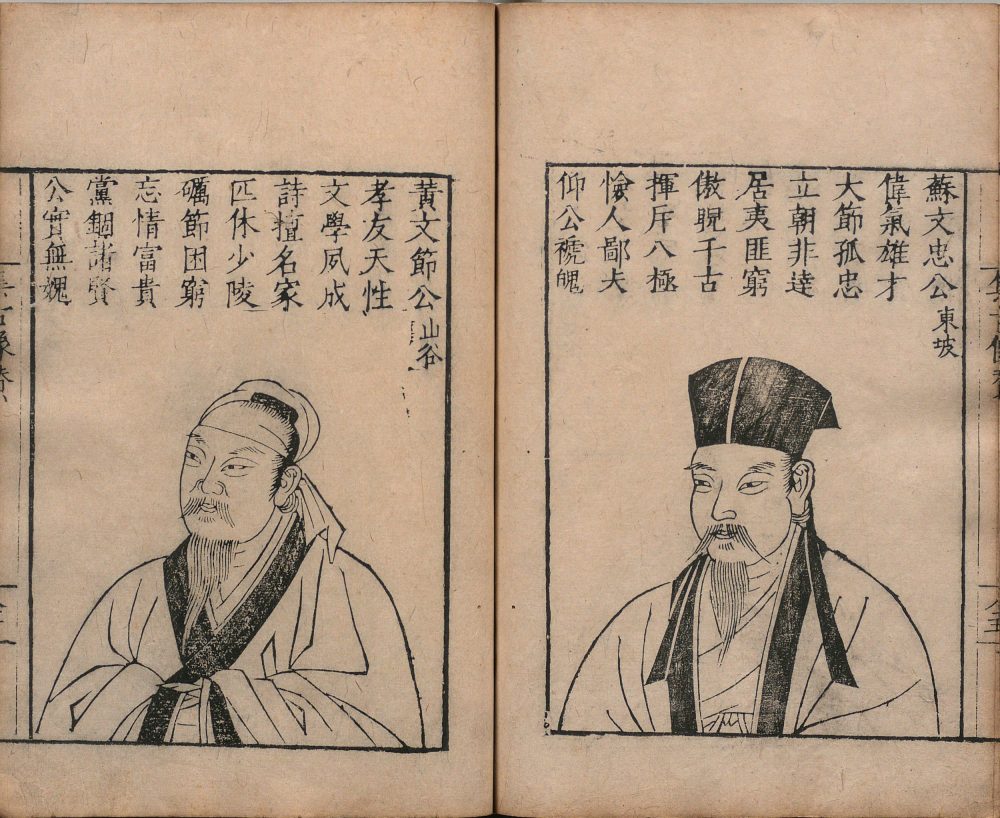 蘇文忠公東坡
偉氣雄才
大節孤忠
立朝非達
居夷匪窮
傲睨千古
揮斥八極
憸人鄙夫
仰公褫魄
黃文節公山谷
孝友天性
文學夙成
詩壇名家
匹休少陵
礪節困窮
忘情富貴
黨錮諸賢
公實無媿